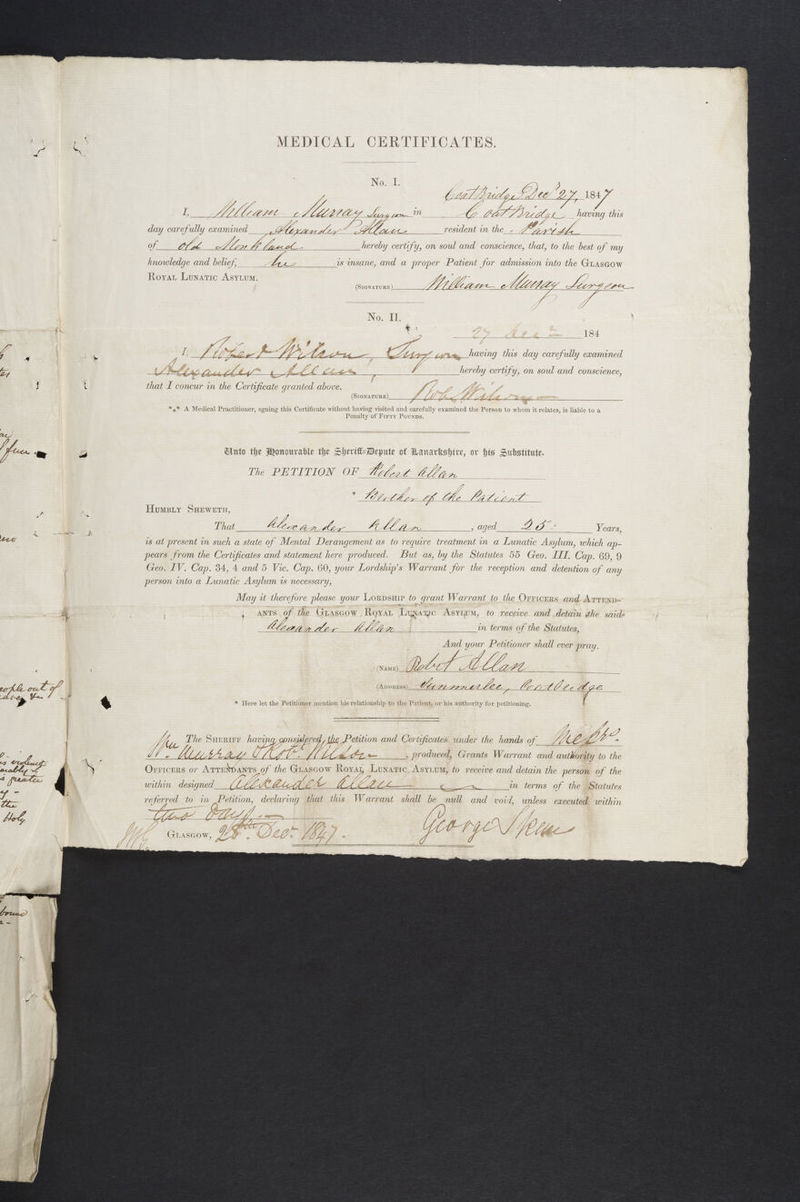 MEDICAL CERTIFICATES.
No. I.
Coat Bridge Decr 27, 1847
I, William Murray Surgeon in Coat Bridge having this
day carefully examined Alexander Allan resident in the Parish
of Old Monkland hereby certify, on soul and conscience, that, to the best of my
knowledge and belief, he is insane, and a proper Patient for admission into the GLASGOW
ROYAL LUNATIC ASYLUM.
(SIGNATURE) William Murray Surgeon
No. II.
27 Decr 184
I, Robert Wilson, Surgeon having this day carefully examined
Alexander Allan, hereby certify, on soul and conscience,
that I concur in the Certificate granted above.
(SIGNATURE) Rob. Wilson
*** A Medical Practitioner, signing this Certificate without having visited and carefully examined the Person to whom it relates, is liable to a
Penalty of FIFTY POUNDS.
Unto the Honourable the Sheriff-Depute of Lanarkshire, or his Substitute.
The PETITION OF Robert Allan
* Brother of the Patient
HUMBLY SHEWETH,
That Alexander Allan, aged 25 Years,
is at present in such a state of Mental Derangement as to require treatment in a Lunatic Asylum, which ap-
pears from the Certificates and statement here produced. But as, by the Statutes 55 Geo. III. Cap. 69, 9
Geo. IV. Cap. 34, 4 and 5 Vic. Cap. 60, your Lordship's Warrant for the reception and detention of any
person into a Lunatic Asylum is necessary,
May it therefore please your LORDSHIP to grant Warrant to the OFFICERS and ATTEND-
ANTS of the GLASGOW ROYAL LUNATIC ASYLUM, to receive and detain the said
Alexander Allan in terms of the Statutes,
And your Petitioner shall ever pray.
(NAME) Robert Allan
(ADDRESS) Summerlee, Coatbridge
* Here let the Petitioner mention his relationship to the Patient, or his authority for petitioning.
The SHERIFF having considered the Petition and Certificates under the hands of Messrs.
Wm Murray & Robt. Wilson, produced, Grants Warrant and authority to the
OFFICERS or ATTENDANTS of the GLASGOW ROYAL LUNATIC ASYLUM, to receive and detain the person of the
within designed Alexander Allan in terms of the Statutes
referred to in Petition, declaring that this Warrant shall be null and void, unless executed within
two days.
GLASGOW, 28th Decr. 1847. George Skene
people out of
greater
the
Holy
bound